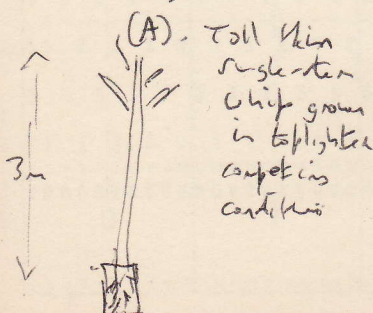 (A). Tall thin
single-stem
whip grown
in toplighted
competing
conditions
3m